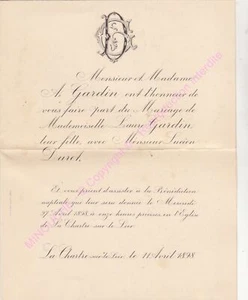 Monsieur et Madame
A. Gardon ont l'honneur de
vous faire part du Mariage de
Mademoiselle Laure Gardon,
leur fille, avec Monsieur Lucien
Duret.
Et vous prient d'assister à la Bénédiction
nuptiale qui leur sera donnée le Mercredi
27 Avril 1898, à onze heures précises, en l'Eglise
de La Chartre sur le Loir.
La Chartre sur le Loir, le 11 Avril 1898